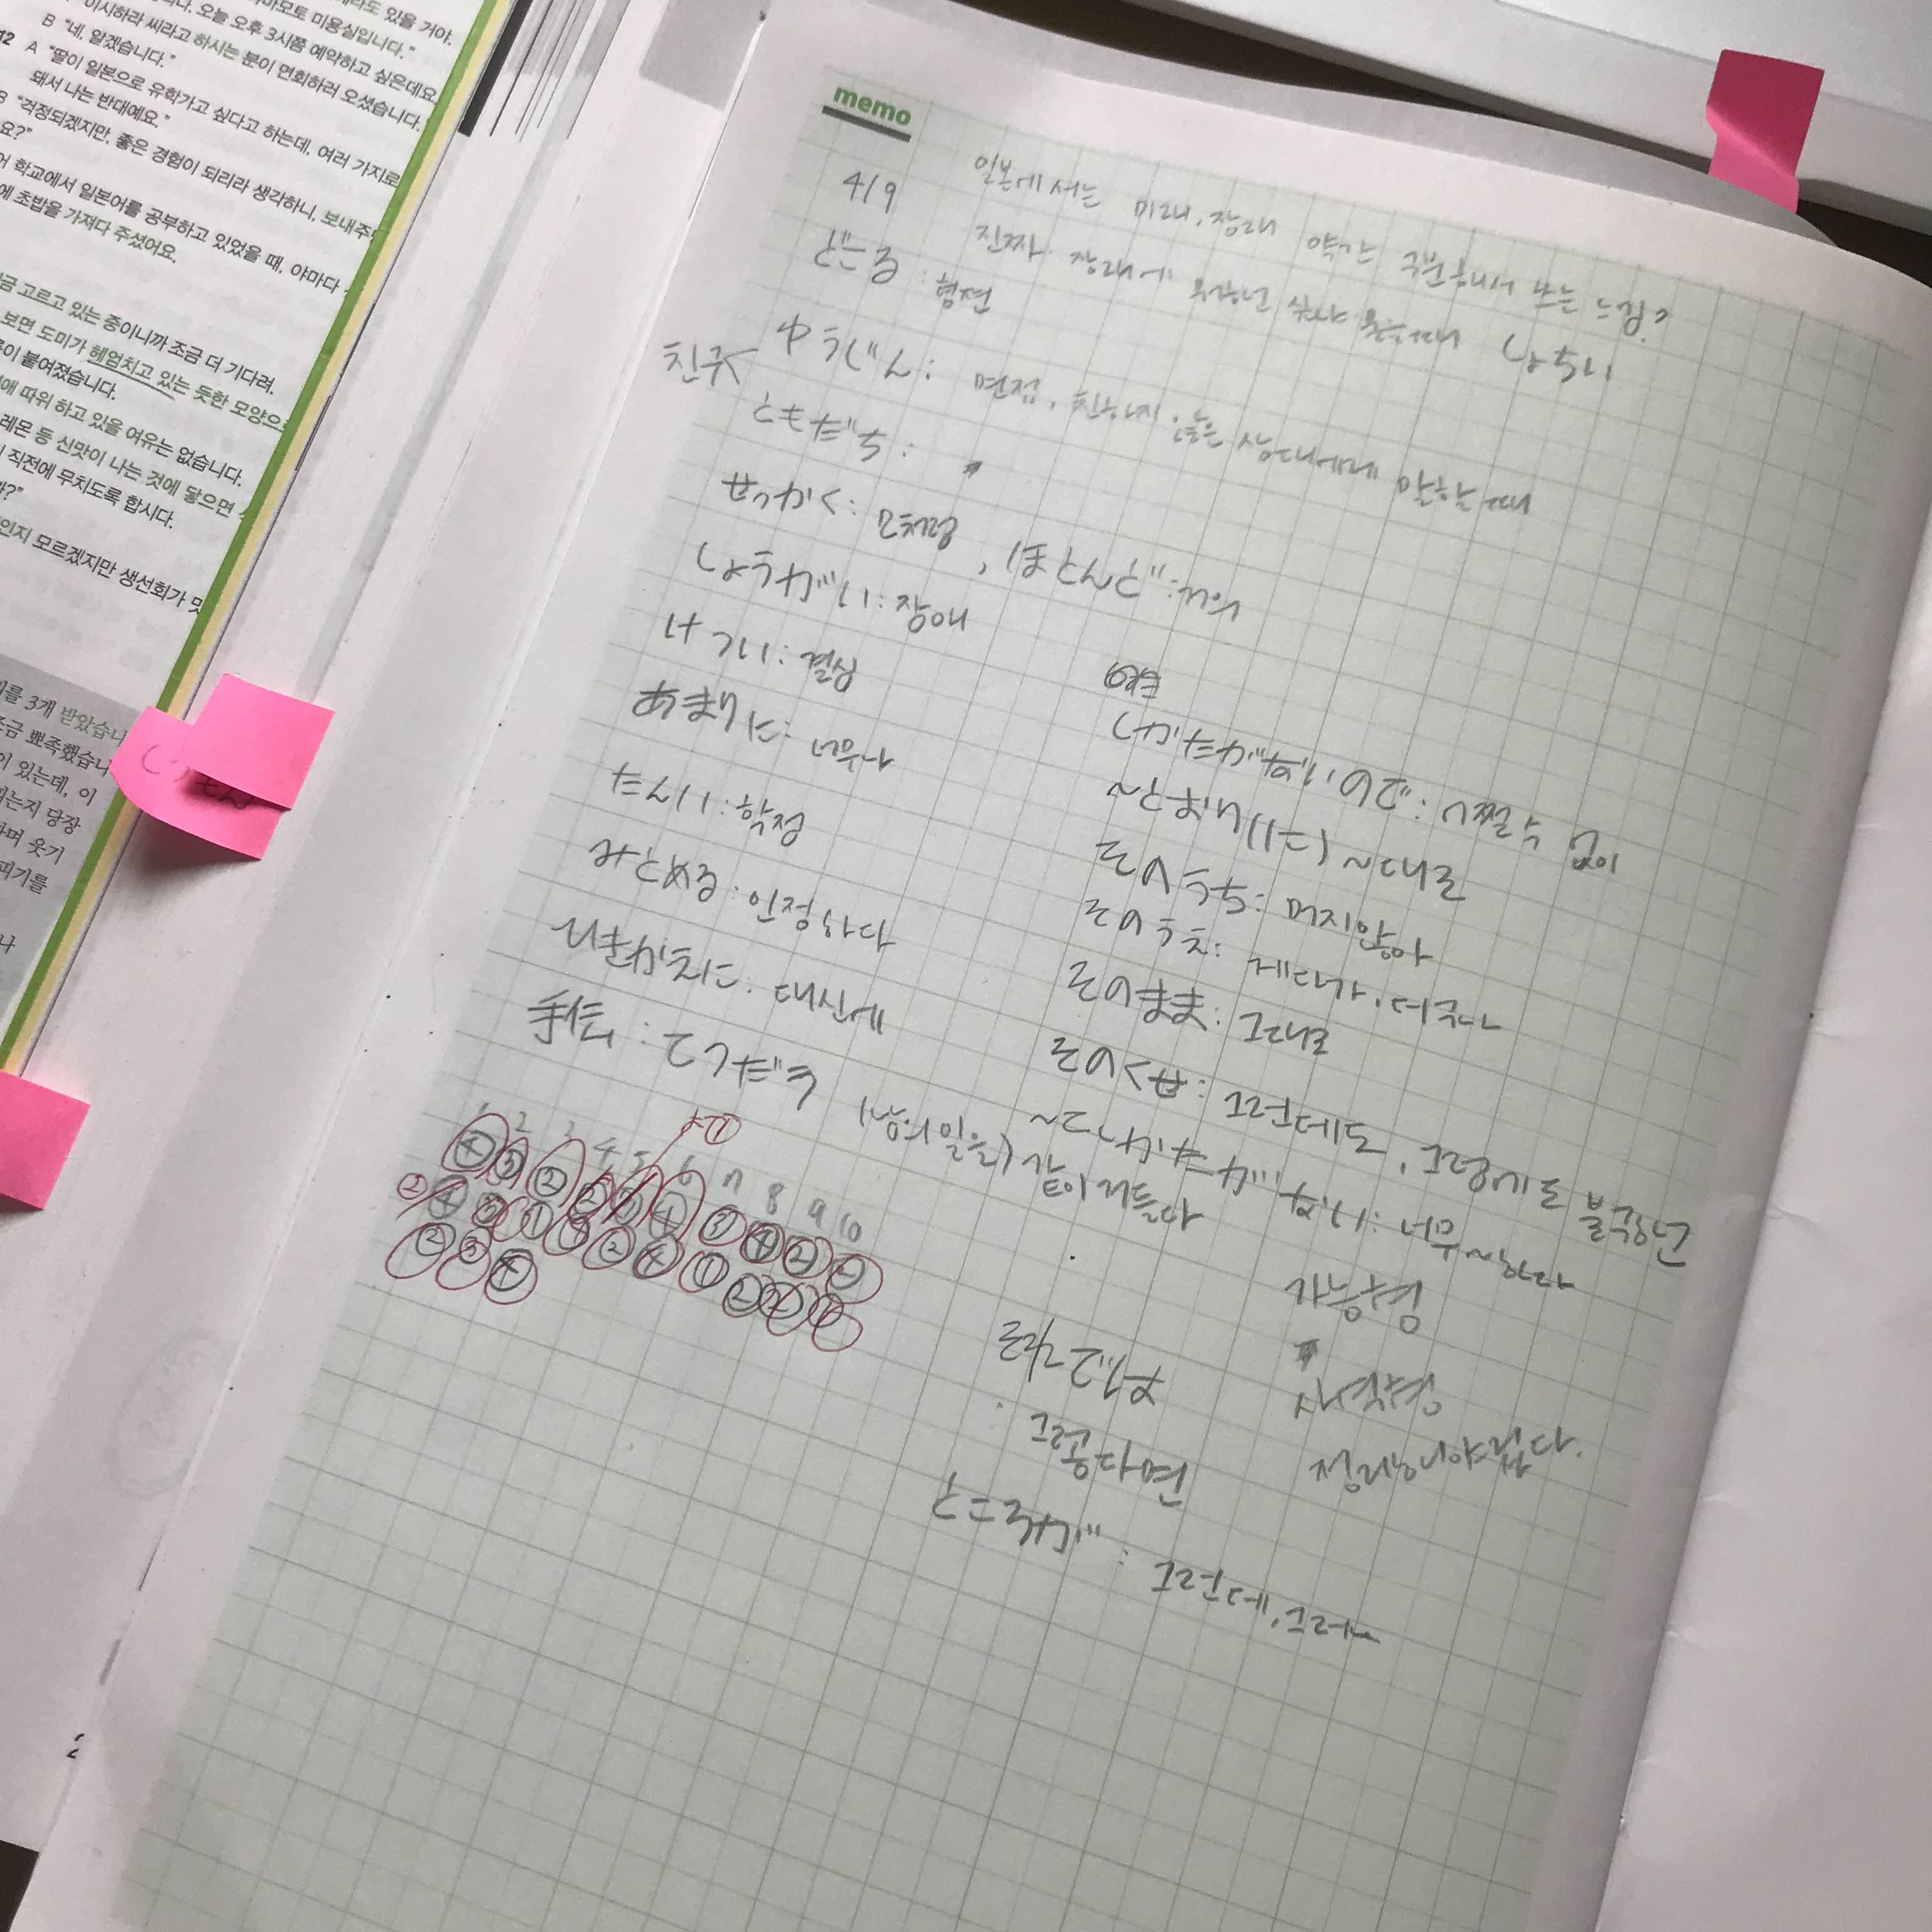 라도 있을 거야.
마모토 미용실입니다."
나. 오늘 오후 3시쯤 예약하고 싶은데요
이시하라 씨라고 하시는 분이 면회하러 오셨습니다.
B "네, 알겠습니다."
12 A "딸이 일본으로 유학가고 싶다고 하는데, 여러 가지로
돼서 나는 반대예요."
B "걱정되겠지만, 좋은 경험이 되리라 생각하니, 보내주
요?"
어 학교에서 일본어를 공부하고 있었을 때, 야마다
에 초밥을 가져다 주셨어요.
금 고르고 있는 중이니까 조금 더 기다려.
보면 도미가 헤엄치고 있는 듯한 모양으
이 붙여졌습니다.
애 따위 하고 있을 여유는 없습니다.
레몬 등 신맛이 나는 것에 닿으면
직전에 무치도록 합시다.
까?"
인지 모르겠지만 생선회가 맛
를 3개 받았습니
조금 뾰족했습니
이 있는데, 이
는지 당장
하며 웃기
피기를
나
memo
4/9
일본에서는 미래, 장래 약간 구분해서 쓰는 느낌?
진짜 장래에 뭐하고 싶냐 물을때
どころ : 형편
친구
ゆうじん : 면접, 친하지 않은 상대에게 말할때
ともだち :
せっかく : 모처럼 , ほとんど : 거의
しょうがい : 장애
けつい : 결심
あまりに : 너무나
たんい : 학점
みとめる : 인정하다
ひきかえに : 대신에
手伝 : てつだう (남의 일을) 같이 거들다
しかたがないので : 어쩔 수 없이
~とおり(に) ~대로
そのうち : 머지않아
そのうえ : 게다가, 더구나
そのまま : 그대로
そのくせ : 그런데도, 그럼에도 불구하고
~てしかたがない : 너무~하다
가능형
사역형
정리해야겠다.
それでは
: 그렇다면
ところが : 그런데, 그러나
1 2 3 4 5 6 7 8 9 10
④ ③ ②
② ③ ④